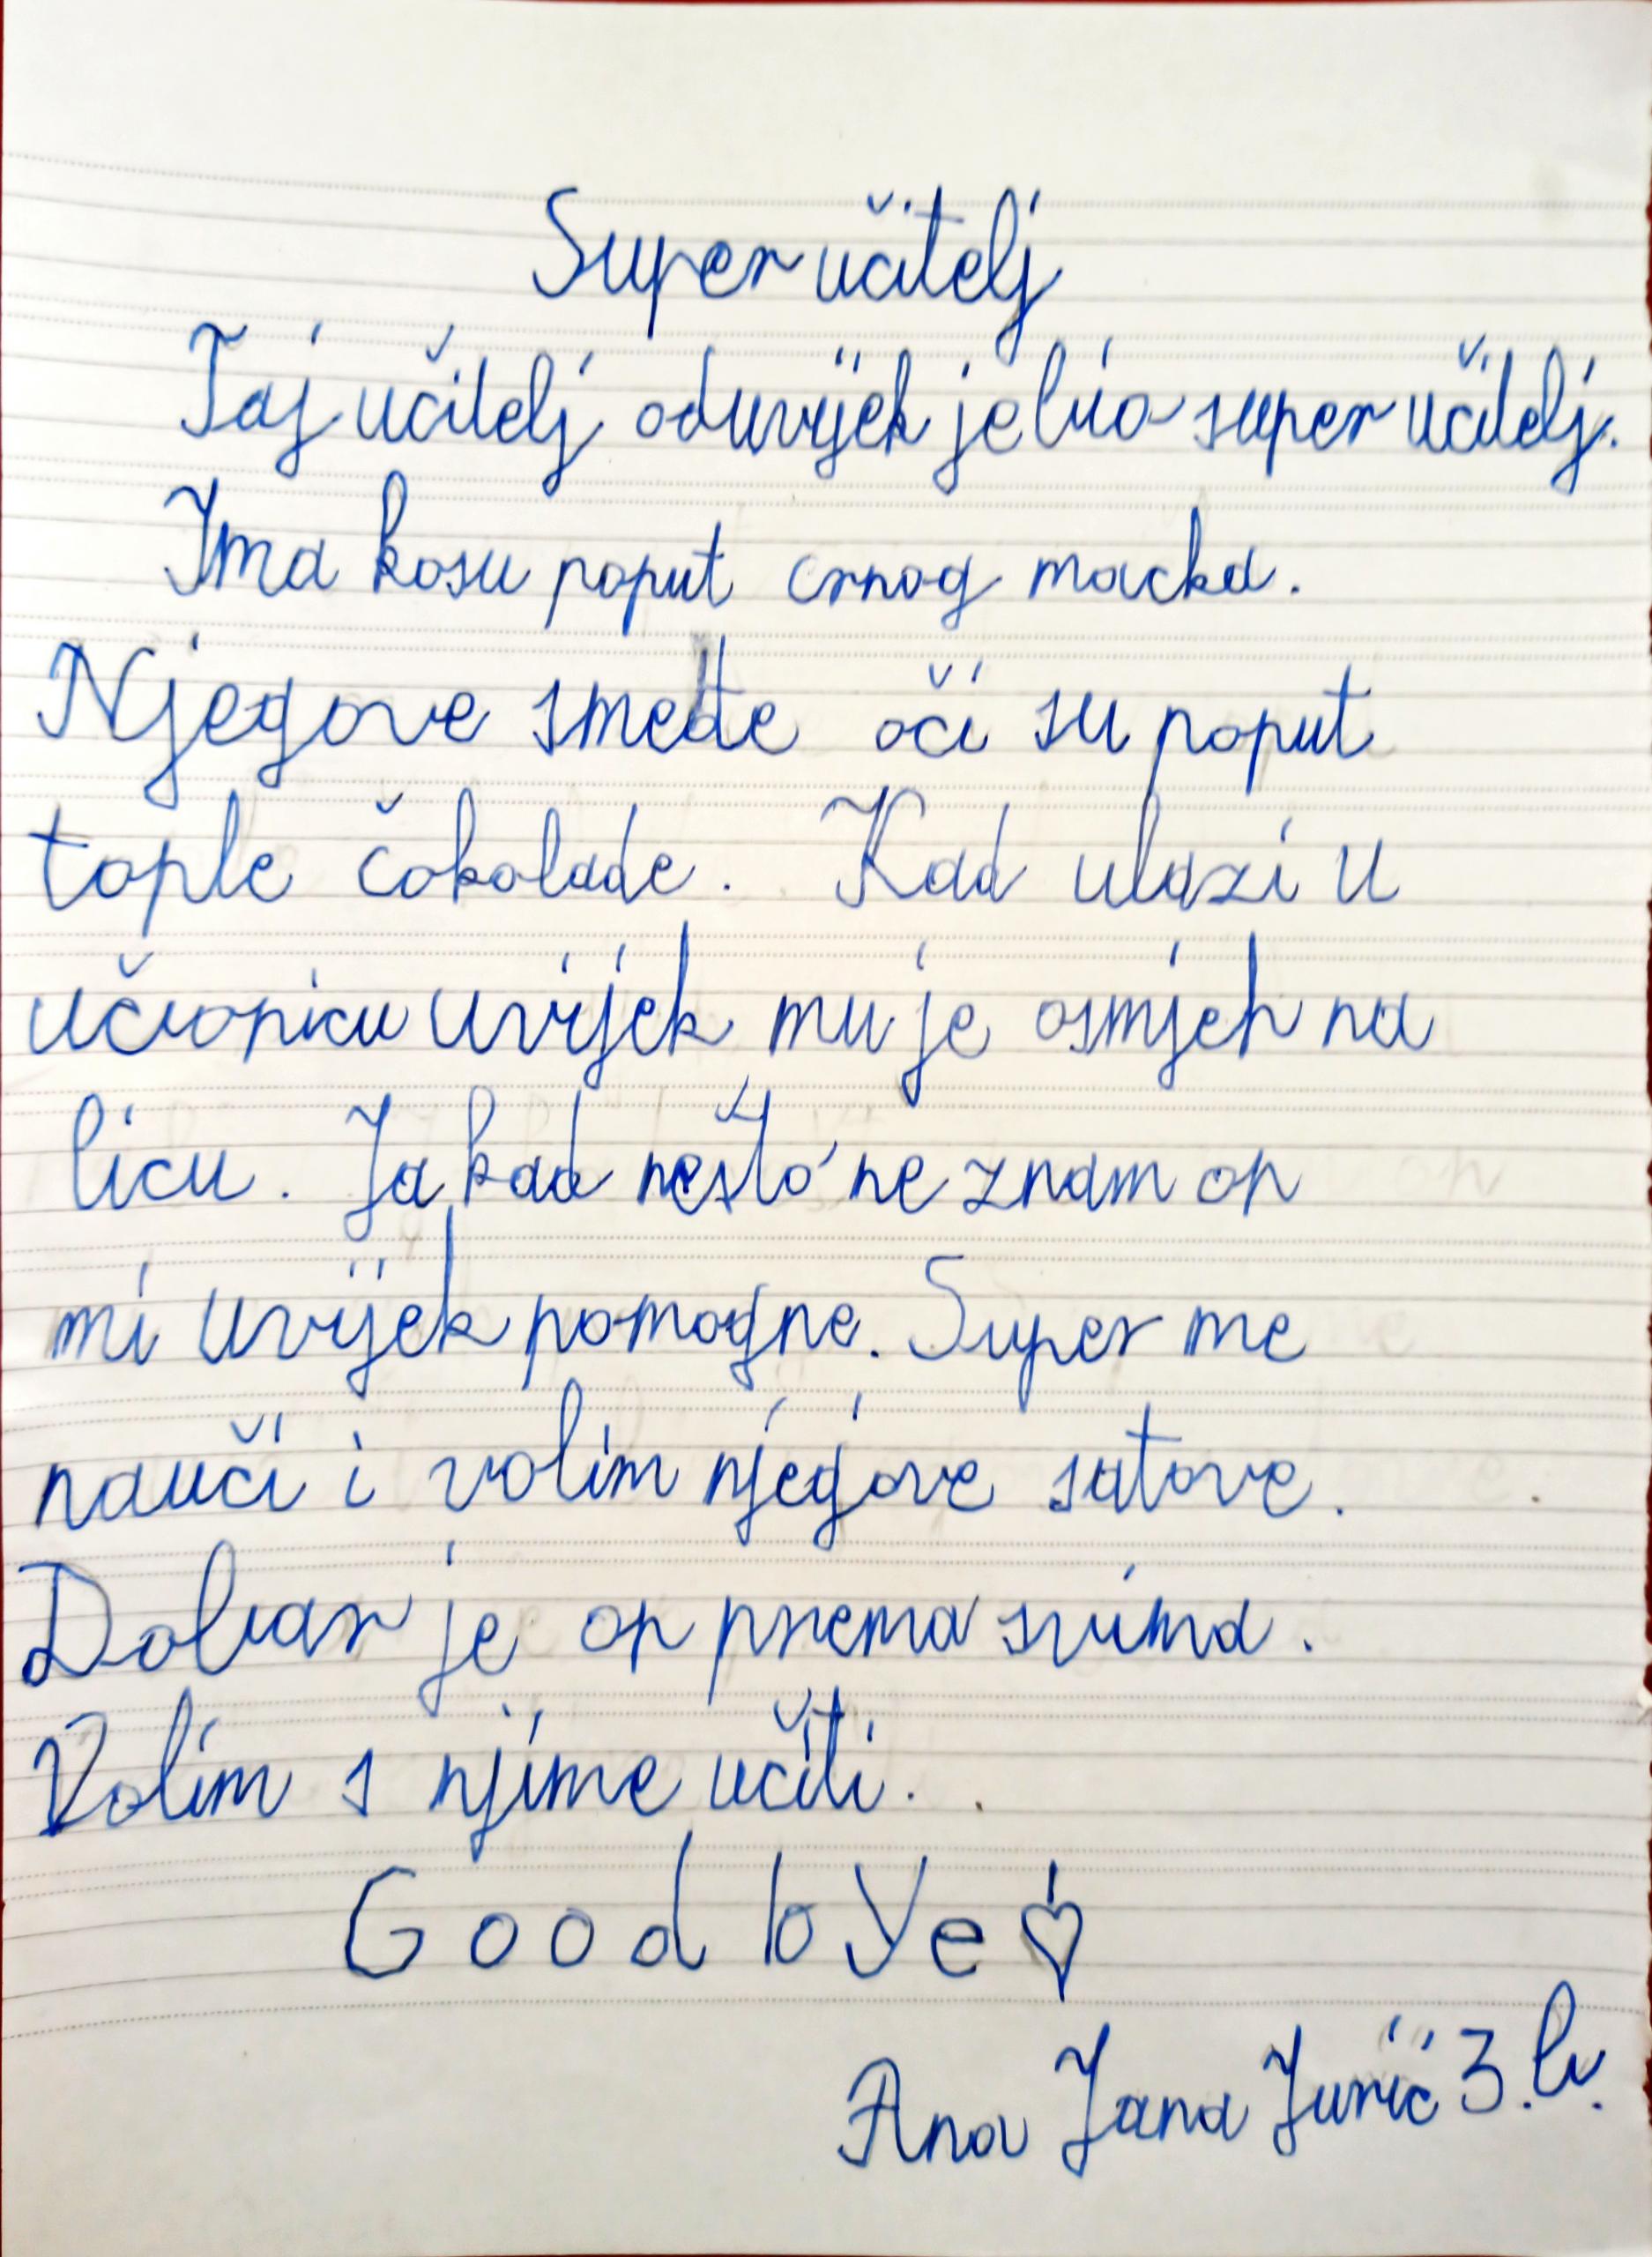 Super učitelj
Taj učitelj oduvijek je bio super učitelj.
Ima kosu poput crnog macka.
Njegove smeđe oči su poput
tople čokolade. Kad ulazi u
učionicu uvijek mu je osmjeh na
licu. Ja kad nešto ne znam on
mi uvijek pomogne. Super me
nauči i volim njegove satove.
Dobar je on prema svima.
Volim s njime učiti.
Good bye ♡
Ana Jana Jurić 3.b.